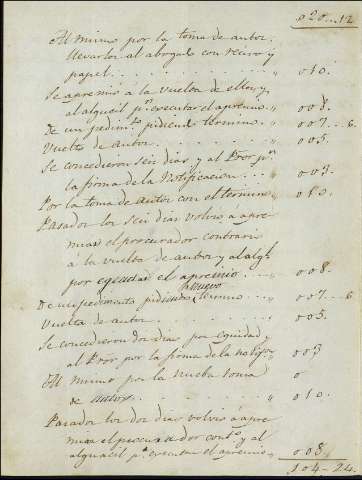 020...12
Al mismo por la toma de autos.
llevarlos al abogado con recivo y
papel . . . . . . . . . . " 010.
Se apremio a la vuelta de ellos, y
al alguacil pª executar el apremio. " 008.
De un pedimtº pidiendo termino. . " 007...6.
Vuelta de autos . . . . . . . " 005.
Se concedieron seis dias y al Pror pr
la firma de la Notificacion . . . " 003.
Por la toma de autos con el termino " 080.
Pasados los seis dias volvio a apre
miar el procurador contrario
á la vuelta de autos y al algl
por egecutar el apremio . . . . " 008.
De un pedimento pidiendo nuevo termino . . . " 007...6
Vuelta de autos . . . . . . . " 005.
Se concedieron dos dias por equidad, y
al Pror por la firma de la notifon " 003
Al mismo por la nueba toma
de autos . . . . . . . . " 010.
Pasados los dos dias volvio á apre
miar el procurador conto y al
alguacil pr executar el apremio " 008
104-24.